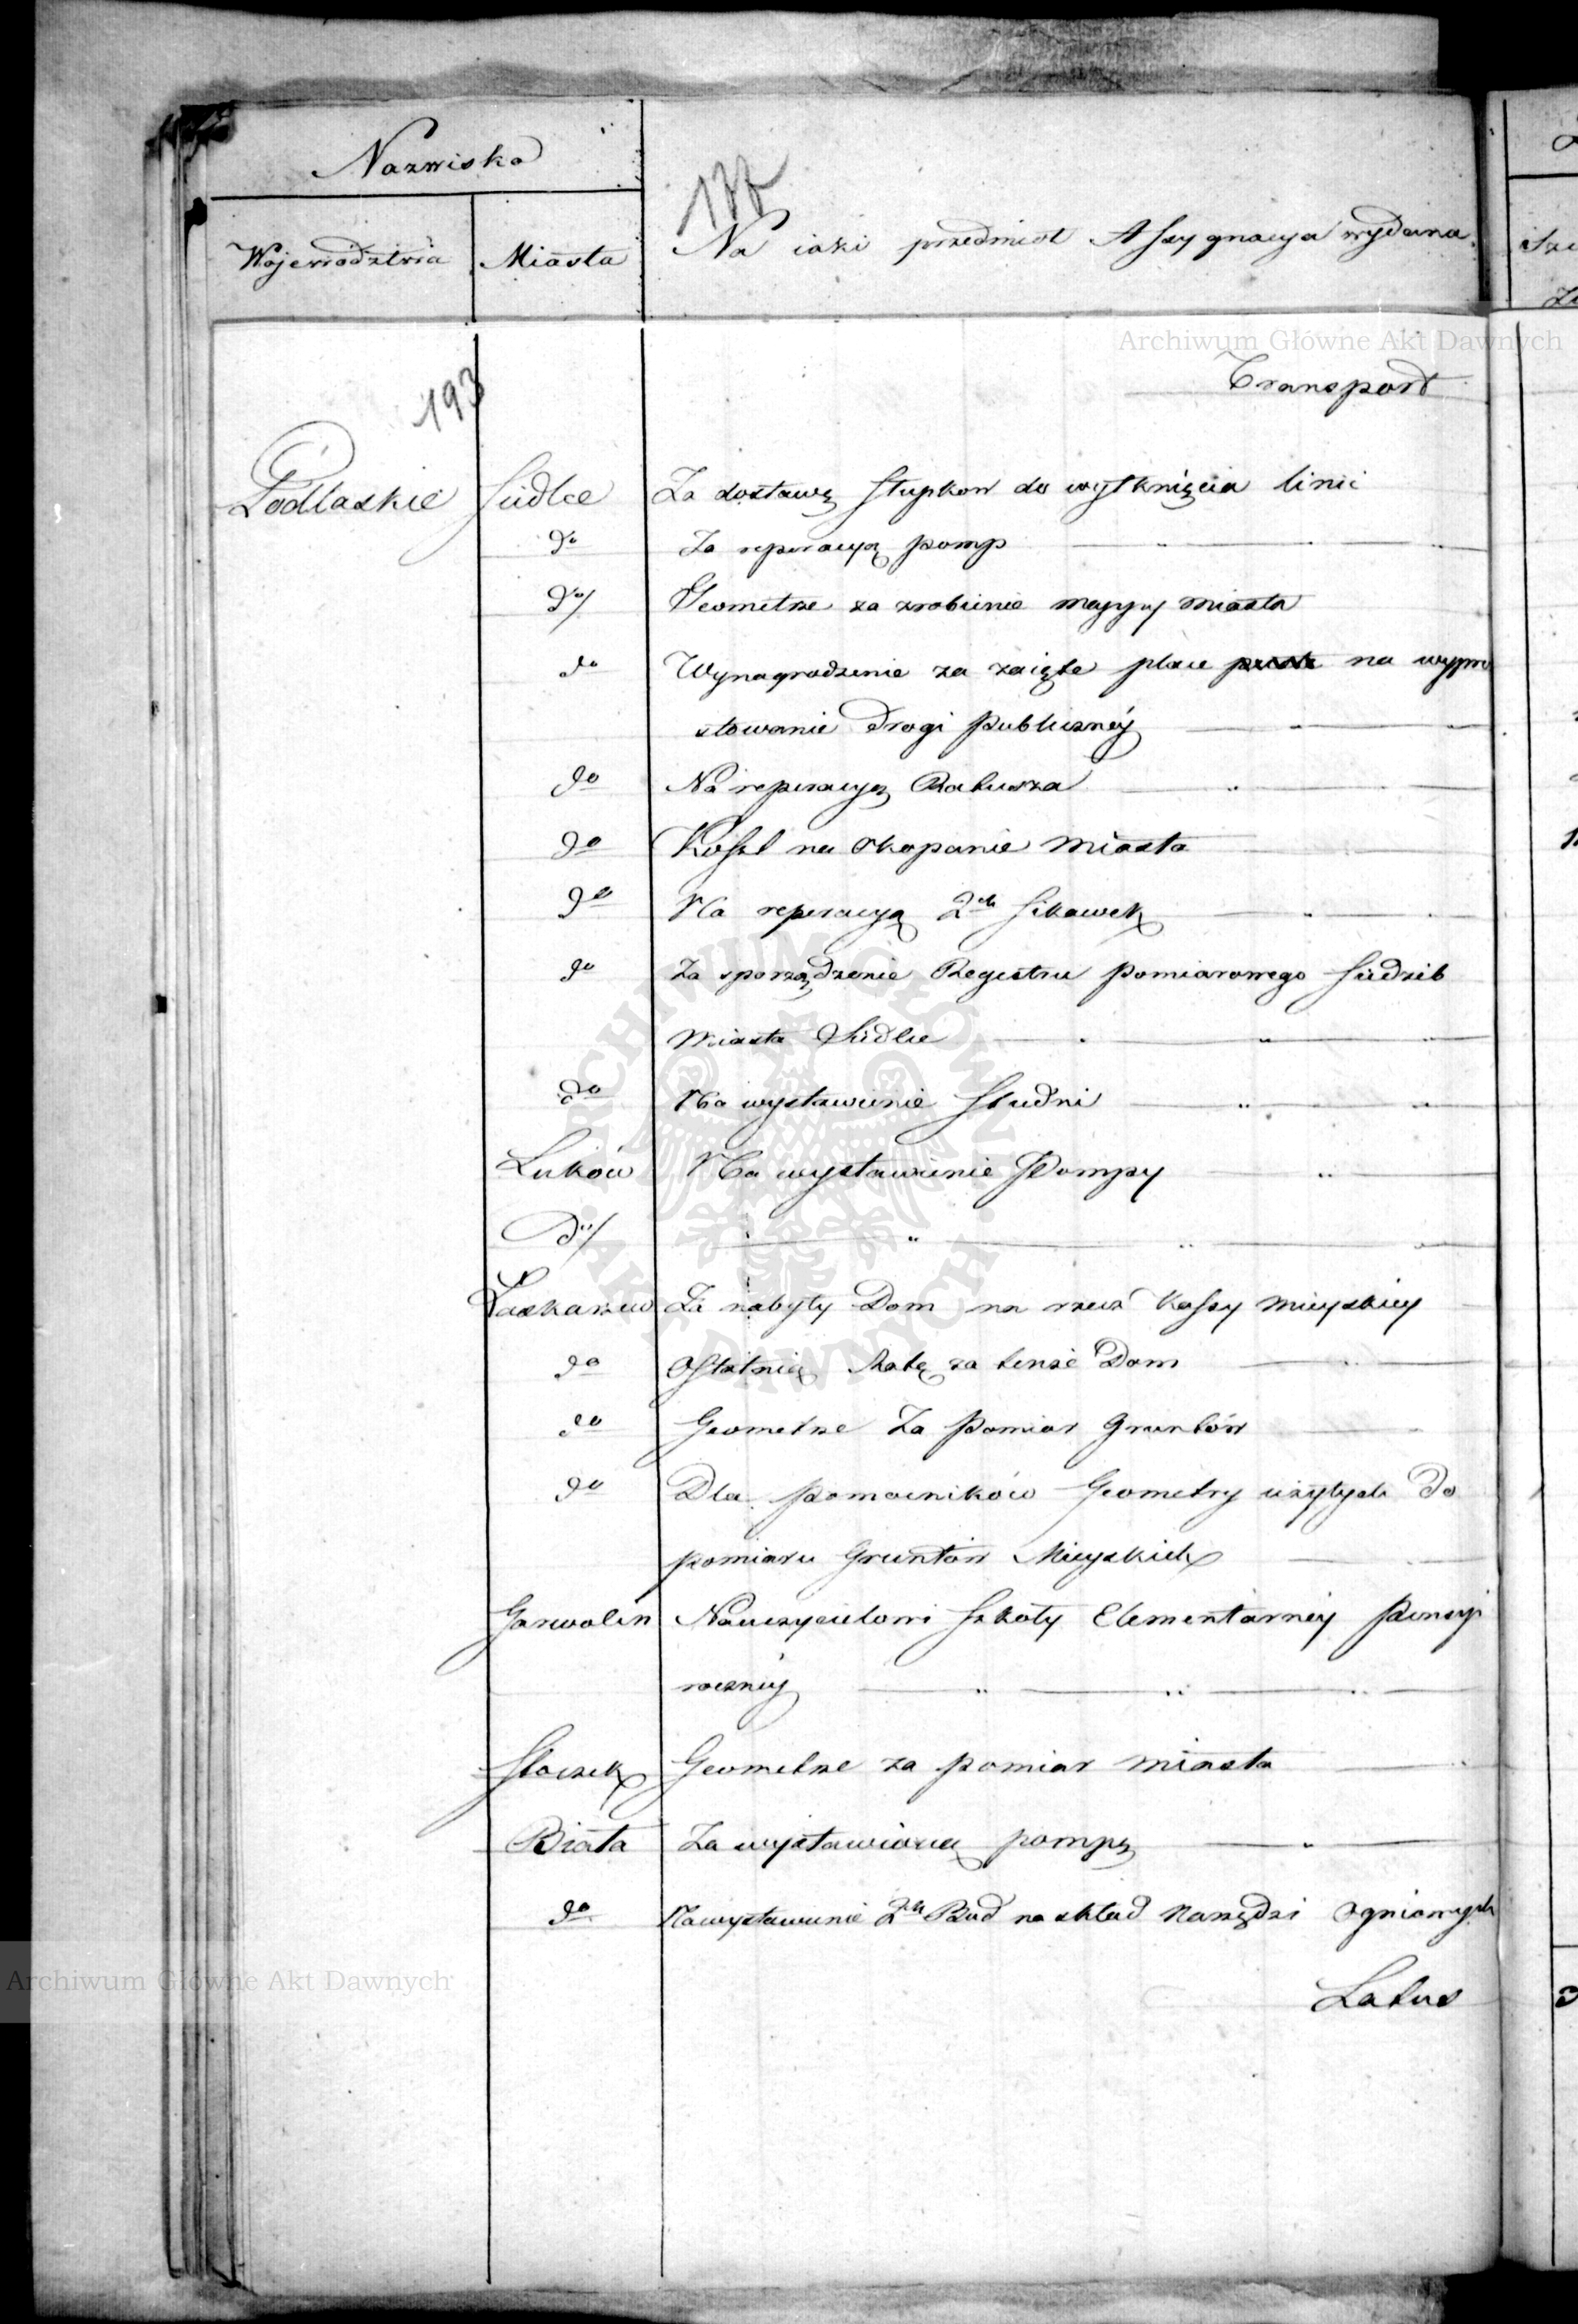 Nazwiska
Województwa Miasta Na iaki przedmiot Assygnacya wydana
Archiwum Główne Akt Dawnych
Transport
193
Podlaskie Siedlce Za dostawę Słupkow do wytknięcia linii
do Za reperacyą pomp
do Geometrze za zrobienie mappy miasta
do Wynagrodzenie za zaięte place na wypro
stowanie drogi publiczney
do Na reperacyę Ratusza
do Koszt na okopanie miasta
do Na reperacyą 2ch Sikawek
do Za sporządzenie Regestru pomiarowego Siedzib
miasta Siedlce
do Na wystawienie Studni
Łuków Na wystawienie Pompy
do
Łaskarzew Za nabyty Dom na rzecz Kassy mieyskiey
do Ostatnią Ratę za tenże Dom
do Geometrze Za Pomiar Gruntów
do Dla pomocników Geometry użytych do
pomiaru Gruntów Mieyskich
Garwolin Nauczycielowi Szkoły Elementarney Pensyi
roczney
Stoczek Geometrze za pomiar miasta
Biała Za wystawioną pompę
do Na wystawienie 2ch Bud na skład narzędzi ogniowych
Archiwum Główne Akt Dawnych
Latus